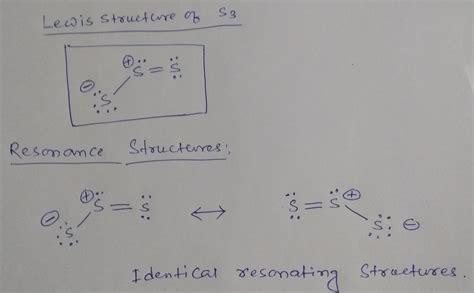 Lewis structure of S3
⊕ S = S
⊖ S
Resonance Structures:
⊕ S = S ↔ S = S ⊕
⊖ S S ⊖
Identical resonating structures.